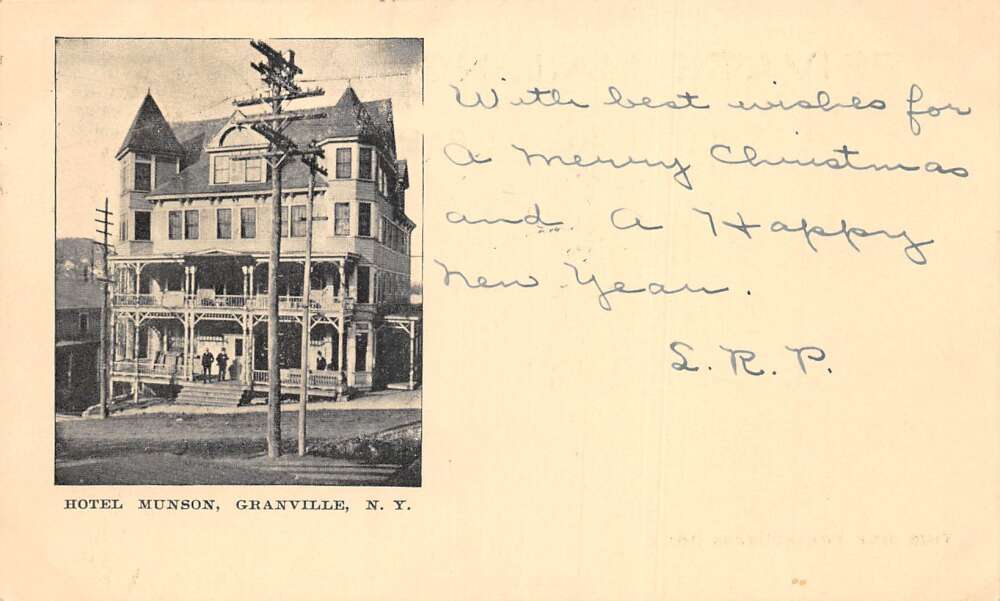 With best wishes for
A Merry Christmas
and. A Happy
New Year.
S. R. P.
HOTEL MUNSON, GRANVILLE, N. Y.